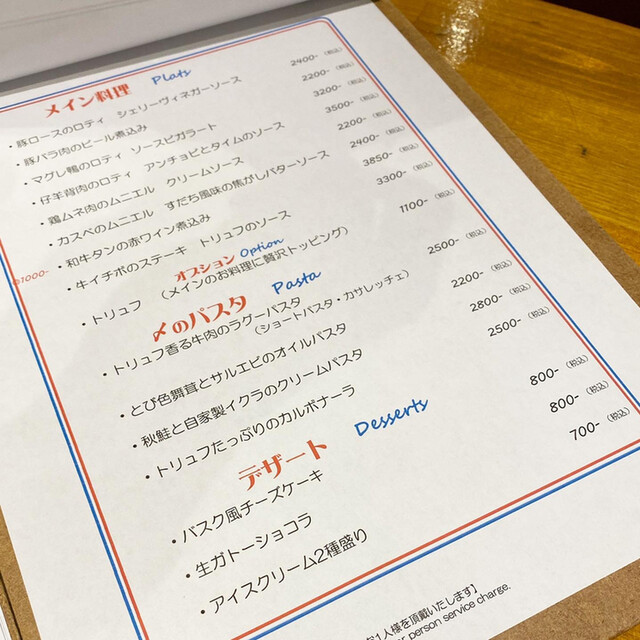 メイン料理 Plats
・豚ロースのロティ シェリーヴィネガーソース 2400-（税込）
・豚バラ肉のビール煮込み 2200-（税込）
・マグレ鴨のロティ ソースビガラート 3200-（税込）
・仔羊背肉のロティ アンチョビとタイムのソース 3500-（税込）
・鶏ムネ肉のムニエル クリームソース 2200-（税込）
・カスベのムニエル すだち風味の焦がしバターソース 2400-（税込）
・和牛タンの赤ワイン煮込み 3850-（税込）
・牛イチボのステーキ トリュフのソース 3300-（税込）
オプション Option
・トリュフ （メインのお料理に贅沢トッピング） 1100-（税込）
〆のパスタ Pasta
・トリュフ香る牛肉のラグーパスタ 2500-（税込）
（ショートパスタ・カサレッチェ）
・とび色舞茸とサルエビのオイルパスタ 2200-（税込）
・秋鮭と自家製イクラのクリームパスタ 2800-（税込）
・トリュフたっぷりのカルボナーラ 2500-（税込）
デザート Desserts
・バスク風チーズケーキ 800-（税込）
・生ガトーショコラ 800-（税込）
・アイスクリーム2種盛り 700-（税込）
1人様を頂戴いたします】
person service charge.